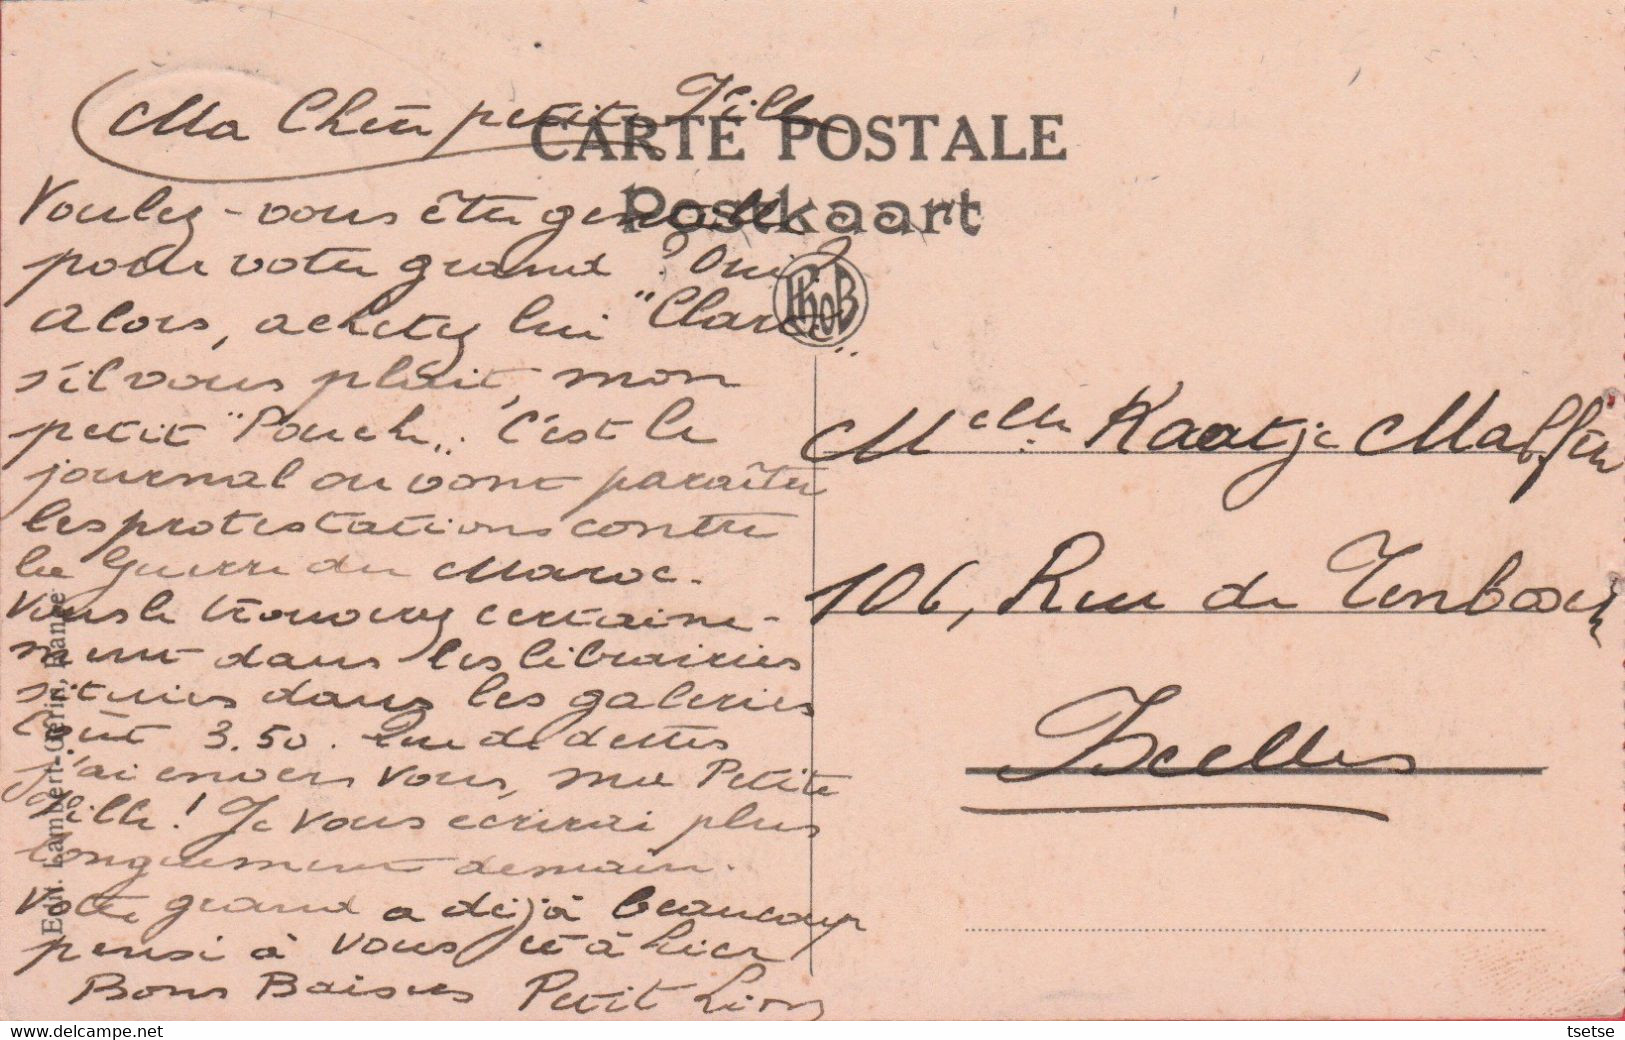 Ma Chère petite Fille
CARTE POSTALE
Postkaart
Voulez-vous être gentille
pour votre grand ? Oui ?
Alors, achetez lui "Clarté"
s'il vous plait, mon
petit "Pouche". C'est le
journal ou vont paraître
les protestations contre
la Guerre du Maroc.
Vous le trouverez certaine-
ment dans les librairies
situées dans les galeries
Coût 3.50. Que de dettes
j'ai envers vous, ma Petite
Fille! Je vous écrirai plus
longuement demain.
Votre grand a déjà beaucoup
pensé à vous
Bons Baisers Petit Lion
Melle Kaatje
106, Rue de Tenbosch
Ixelles
Edit. Lambert-Gérin, Hange
tsetse